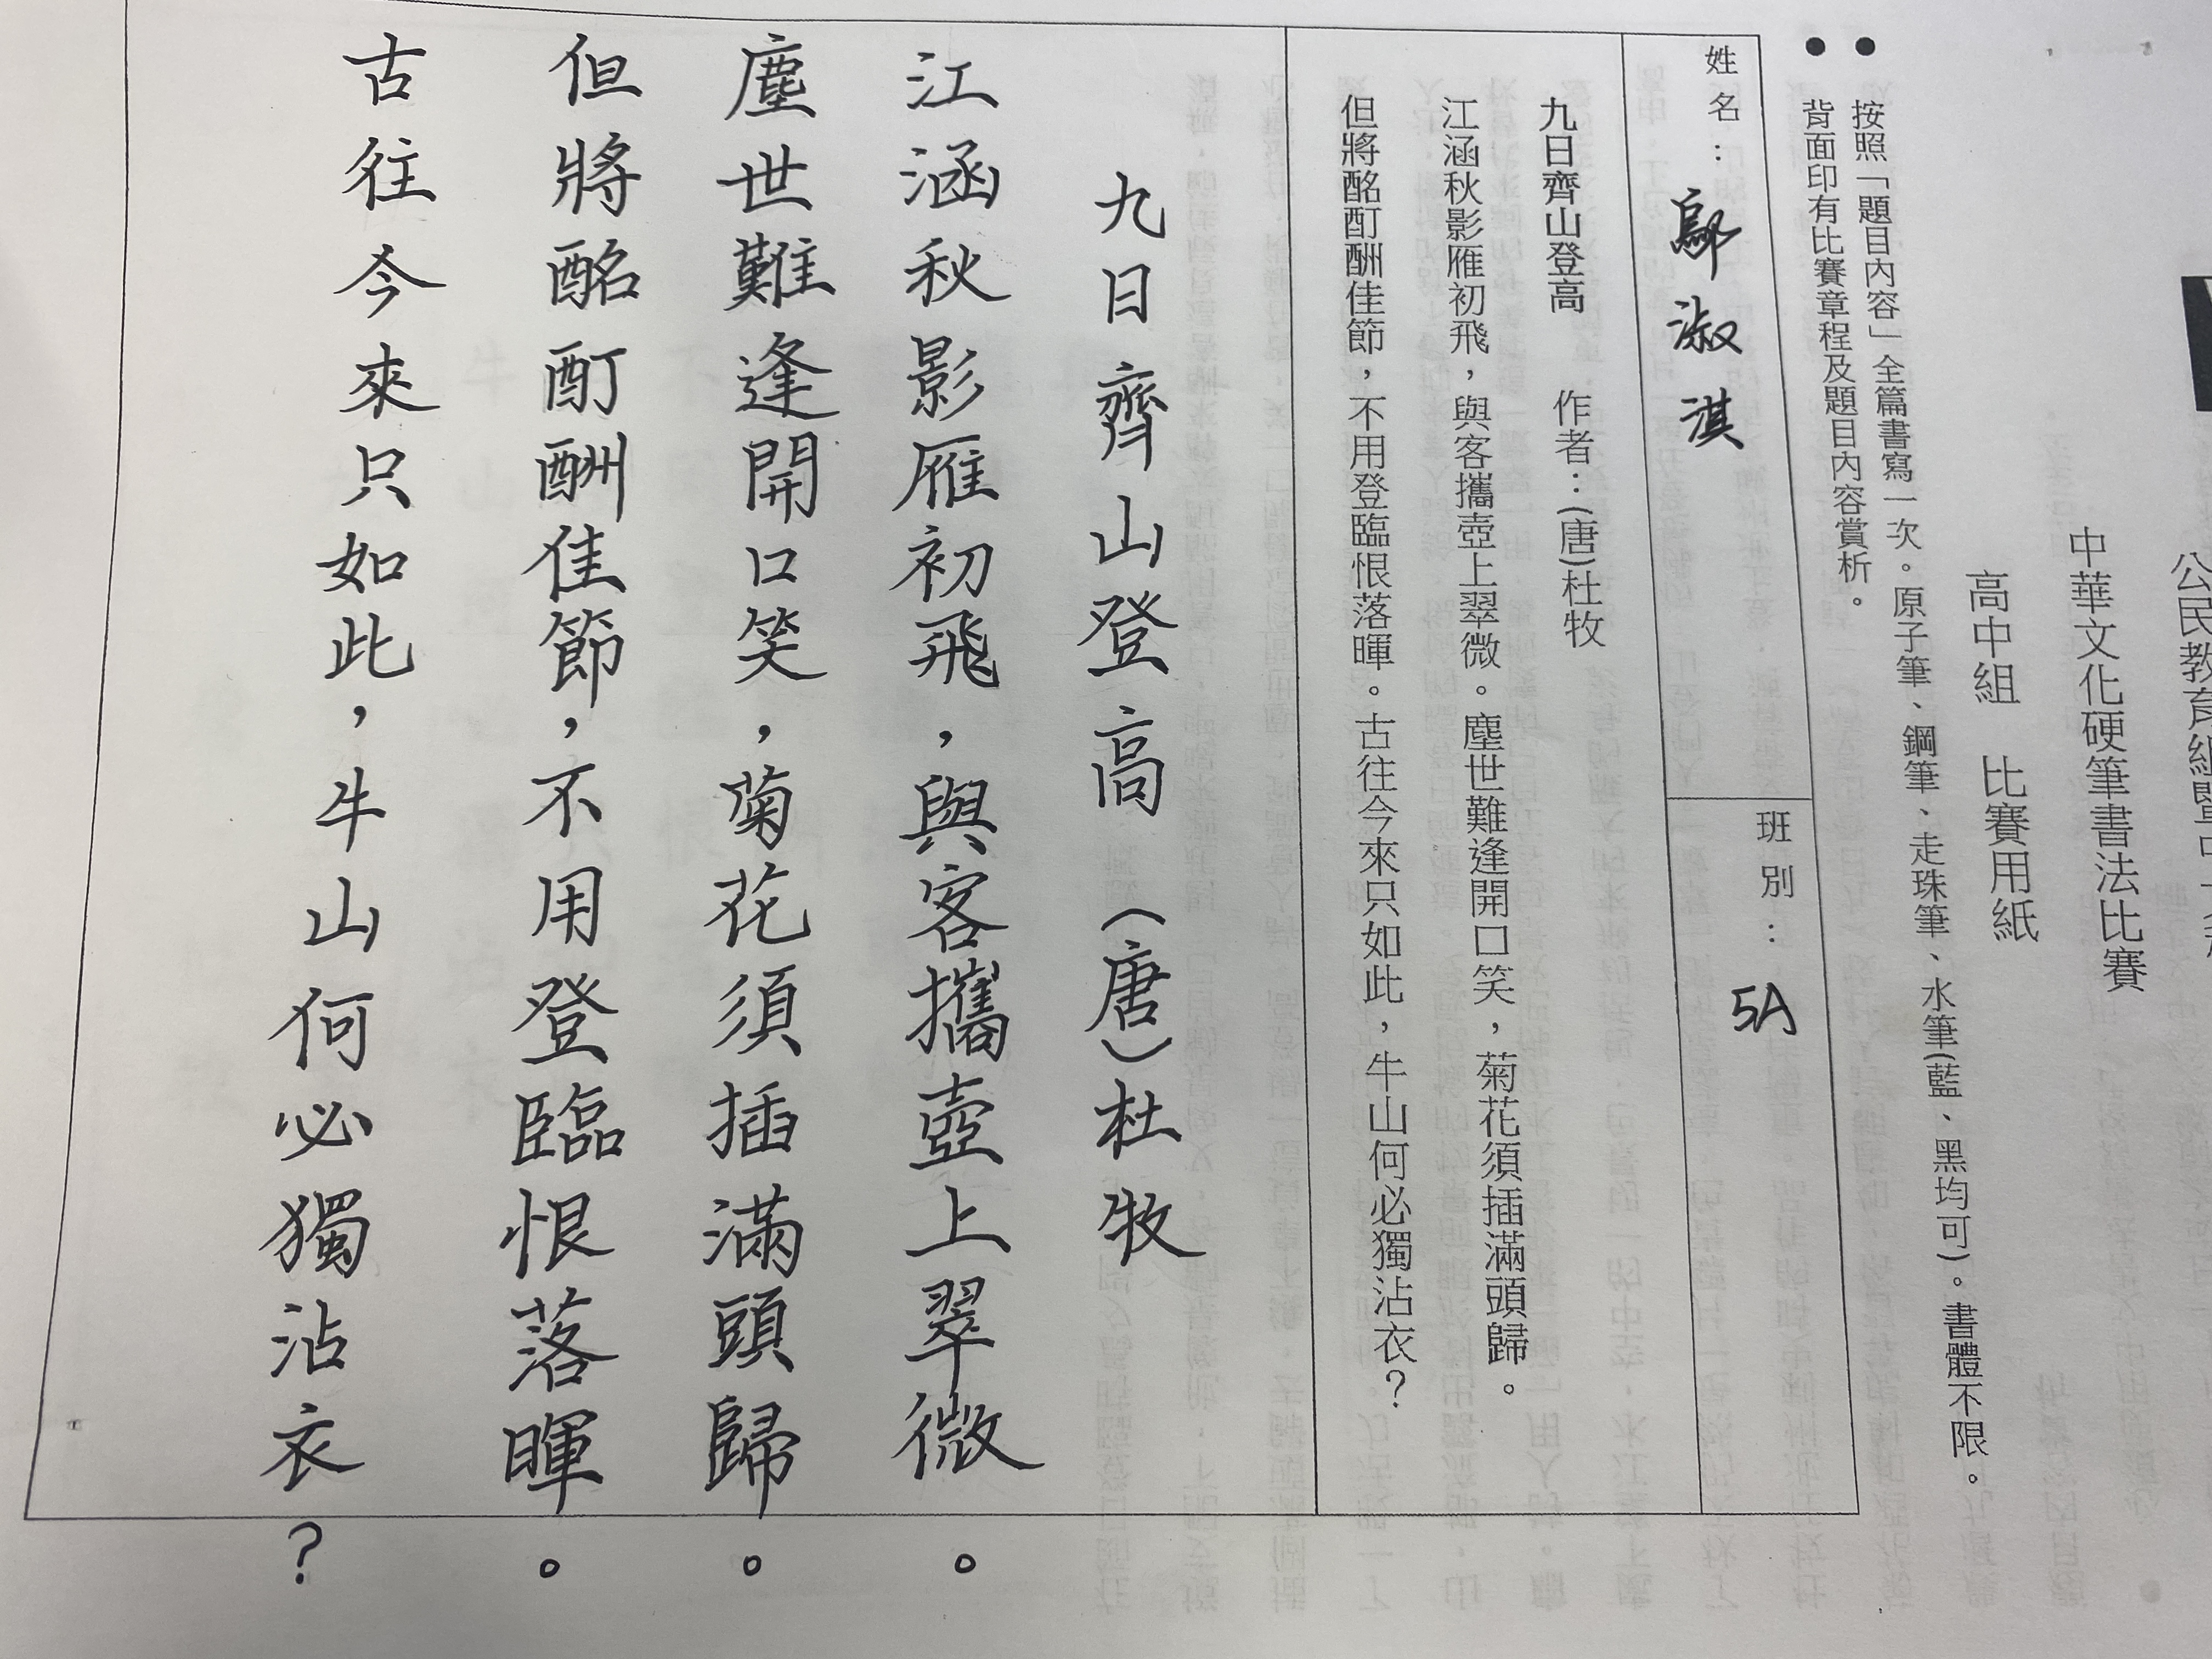 中華文化硬筆書法比賽
高中組 比賽用紙
● 按照「題目內容」全篇書寫一次。原子筆、鋼筆、走珠筆、水筆(藍、黑均可)。書體不限。
● 背面印有比賽章程及題目內容賞析。
姓名： 鄔淑淇 班別： 5A
九日齊山登高 作者：(唐)杜牧
江涵秋影雁初飛，與客攜壺上翠微。塵世難逢開口笑，菊花須插滿頭歸。
但將酩酊酬佳節，不用登臨恨落暉。古往今來只如此，牛山何必獨沾衣？
九日齊山登高 (唐)杜牧
江涵秋影雁初飛，與客攜壺上翠微。
塵世難逢開口笑，菊花須插滿頭歸。
但將酩酊酬佳節，不用登臨恨落暉。
古往今來只如此，牛山何必獨沾衣？